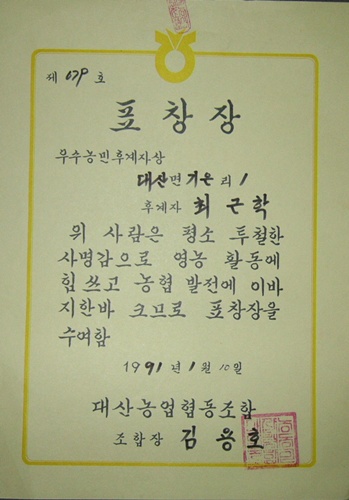 제 079 호
표창장
우수농민후계자상
대산면 기은 리 1
후계자 최근학
위 사람은 평소 투철한
사명감으로 영농 활동에
힘쓰고 농협 발전에 이바
지한바 크므로 표창장을
수여함
1991년 1월 10일
대산농업협동조합
조합장 김용호